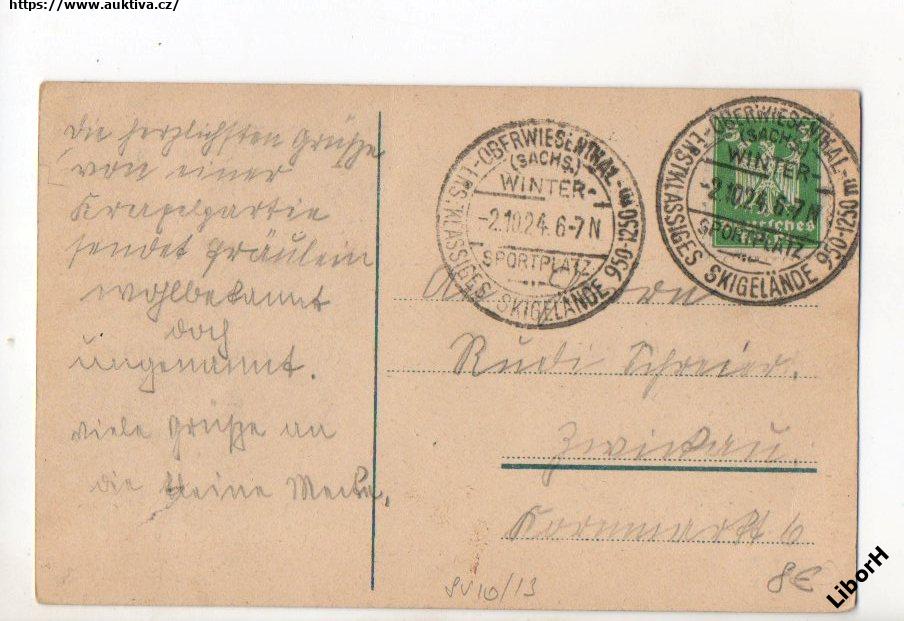 https://www.auktiva.cz/
die herzlichsten Grüße
von einer
sendet Fräulein
wohlbekannt
doch
ungenannt.
viele Grüße an
die kleine
OBERWIESENTHAL
(SACHS.)
WINTER-
-2.10.24.6-7N
SPORTPLATZ
ERSTKLASSIGES SKIGELÄNDE 950-1250 m
OBERWIESENTHAL
(SACHS.)
WINTER-
-2.10.24.6-7N
SPORTPLATZ
ERSTKLASSIGES SKIGELÄNDE 950-1250 m
Rudi Schreier.
Zwickau.
Kornmarkt 6
SV10/13
8€
LiborH